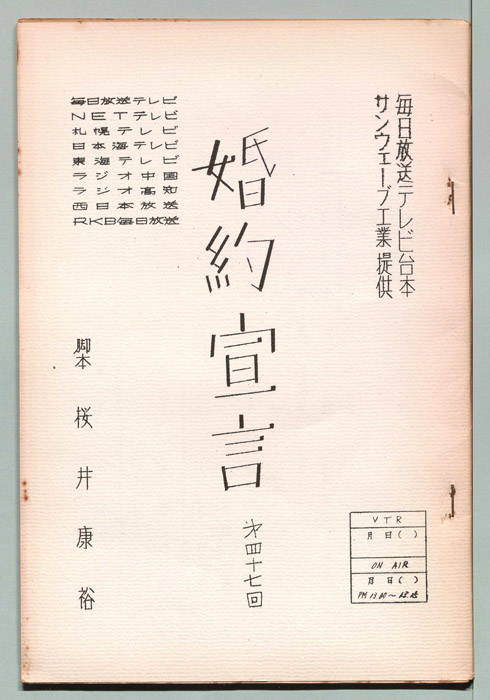 毎日放送テレビ台本
サンウェーブ工業 提供
婚約宣言
第四十七回
毎日放送テレビ
NETテレビ
札幌テレビ
日本海テレビ
東海テレビ
ラジオ中国
ラジオ高知
西日本放送
RKB毎日放送
脚本 桜井康裕
VTR
月 日 ( )
ON AIR
月 日 ( )
PM 13 00〜